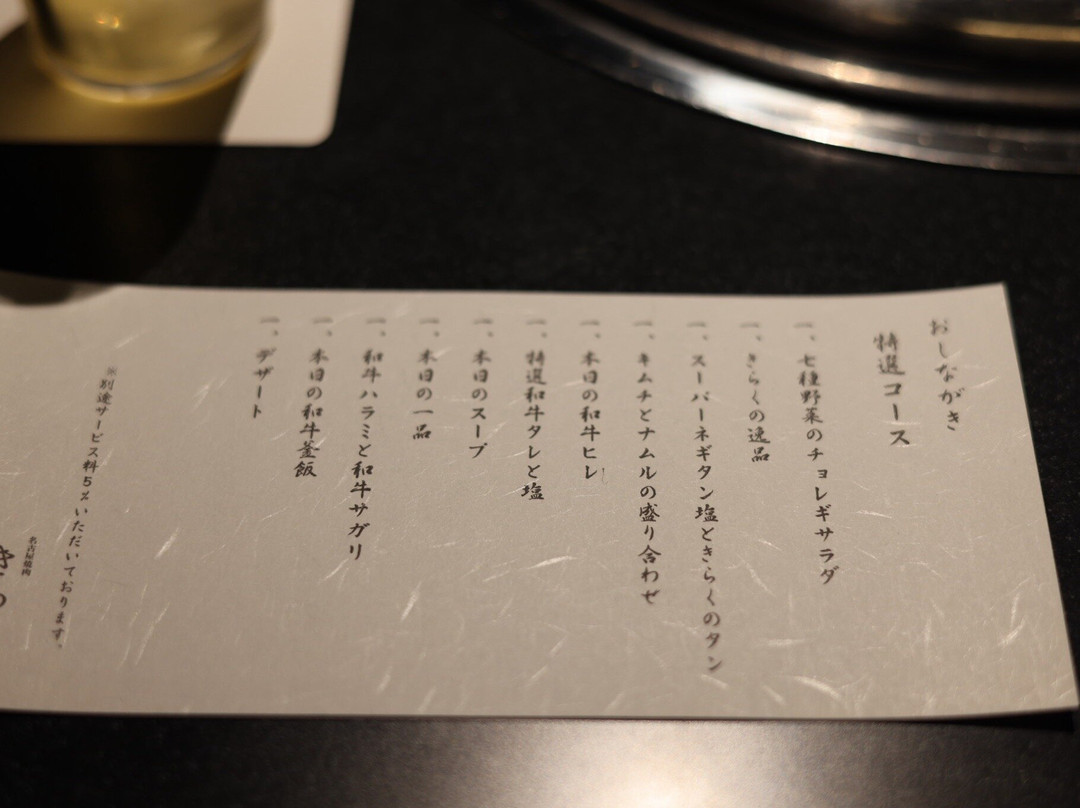 おしながき
特選コース
一、七種野菜のチョレギサラダ
一、きらくの逸品
一、スーパーネギタン塩ときらくのタン
一、キムチとナムルの盛り合わせ
一、本日の和牛ヒレ
一、特選和牛タレと塩
一、本日のスープ
一、本日の一品
一、和牛ハラミと和牛サガリ
一、本日の和牛釜飯
一、デザート
※別途サービス料5%いただいております。
名古屋焼肉